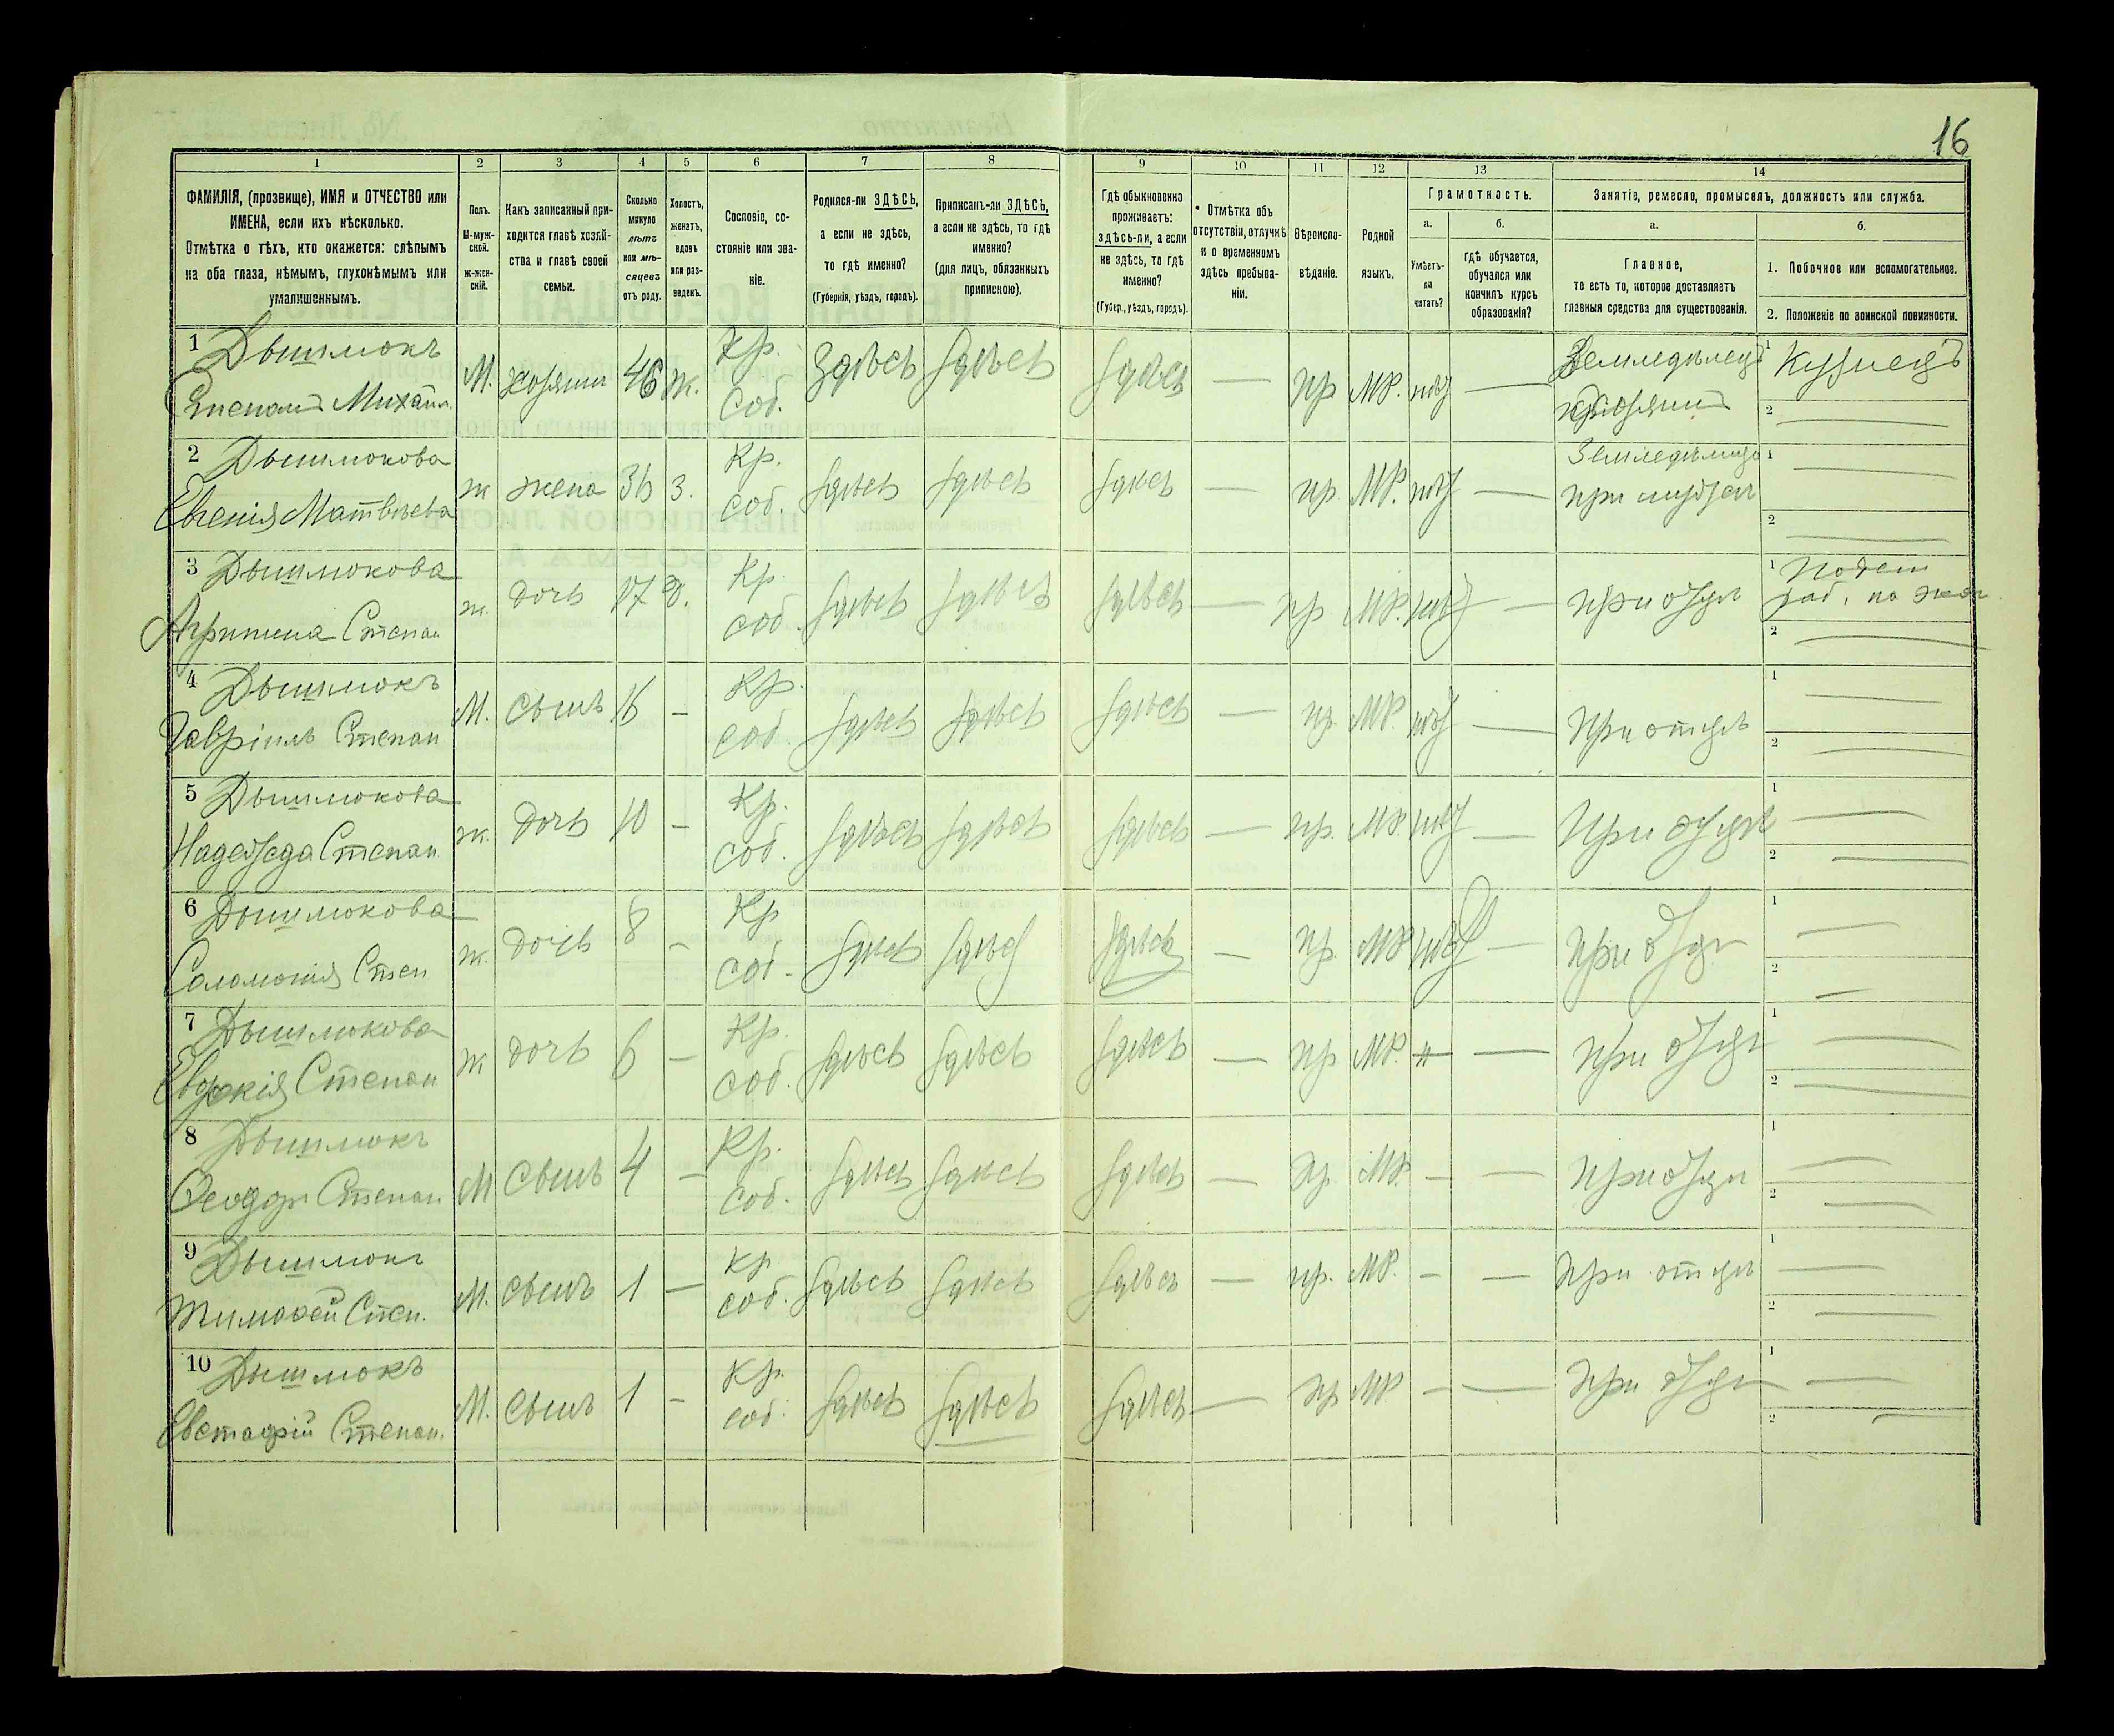 16
1 2 3 4 5 6 7 8 9 10 11 12 13 14
ФАМИЛІЯ, (прозвище), ИМЯ и ОТЧЕСТВО или
ИМЕНА, если ихъ нѣсколько.
Отмѣтка о тѣхъ, кто окажется: слѣпымъ
на оба глаза, нѣмымъ, глухонѣмымъ или
умалишеннымъ.
Полъ.
М-муж-
ской.
ж-жен-
скій.
Какъ записанный при-
ходится главѣ хозяй-
ства и главѣ своей
семьи.
Сколько
минуло
лѣтъ
или мѣ-
сяцевъ
отъ роду.
Холостъ,
женатъ,
вдовъ
или раз-
веденъ.
Сословіе, со-
стояніе или зва-
ніе.
Родился-ли ЗДѢСЬ,
а если не здѣсь,
то гдѣ именно?
(Губернія, уѣздъ, городъ).
Приписанъ-ли ЗДѢСЬ,
а если не здѣсь, то гдѣ
именно?
(для лицъ, обязанныхъ
припискою).
Гдѣ обыкновенно
проживаетъ:
здѣсь-ли, а если
не здѣсь, то гдѣ
именно?
(Губер., уѣздъ, городъ).
Отмѣтка объ
отсутствіи, отлучкѣ
и о временномъ
здѣсь пребыва-
ніи.
Вѣроиспо-
вѣданіе.
Родной
языкъ.
Грамотность.
а.
Умѣетъ-
ли
читать?
б.
гдѣ обучается,
обучался или
кончилъ курсъ
образованія?
Занятіе, ремесло, промыселъ, должность или служба.
а.
Главное,
то есть то, которое доставляетъ
главныя средства для существованія.
б.
1. Побочное или вспомогательное.
2. Положеніе по воинской повинности.
1 Дышлюкъ
Степанъ Михаил.
М. хозяинъ 46 ж. Кр. соб. Здѣсь здѣсь здѣсь — пр МР. нѣт — Земледѣлецъ хозяинъ 1 Кузнецъ 2 —
2 Дышлюкова
Евгенія Матвѣева
ж жена 36 з. Кр. соб. здѣсь здѣсь здѣсь — пр. МР. нѣт — при мужѣ 1 — 2 —
3 Дышлюкова
Агрипина Степан
ж. дочь 17 Кр. соб. здѣсь здѣсь здѣсь — пр. МР. нѣт — при отцѣ 1 раб. 2 —
4 Дышлюкъ
Гавріилъ Степан
М. сынъ 16 — Кр. соб. здѣсь здѣсь здѣсь — пр. МР. нѣт — при отцѣ 1 — 2 —
5 Дышлюкова
Надежда Степан
ж. дочь 10 — Кр. соб. здѣсь здѣсь здѣсь — пр. МР. нѣт — при отцѣ 1 — 2 —
6 Дышлюкова
Соломонія Степ
ж. дочь 8 — Кр соб. здѣсь здѣсь здѣсь — пр. МР нѣт — при отцѣ 1 — 2 —
7 Дышлюкова
Евдокія Степан
ж дочь 6 — Кр. соб. здѣсь здѣсь здѣсь — пр МР. — при отцѣ 1 — 2 —
8 Дышлюкъ
Феодоръ Степан
М сынъ 4 — Кр. соб. здѣсь здѣсь здѣсь — пр. МР. — — при отцѣ 1 — 2 —
9 Дышлюкъ
Тимофей Степ.
М. сынъ 1 — Кр соб. здѣсь здѣсь здѣсь — пр. МР. — — при отцѣ 1 — 2 —
10 Дышлюкъ
Евстафій Степан.
М. сынъ 1 — Кр. соб. здѣсь здѣсь здѣсь — пр МР — — при отцѣ 1 — 2 —